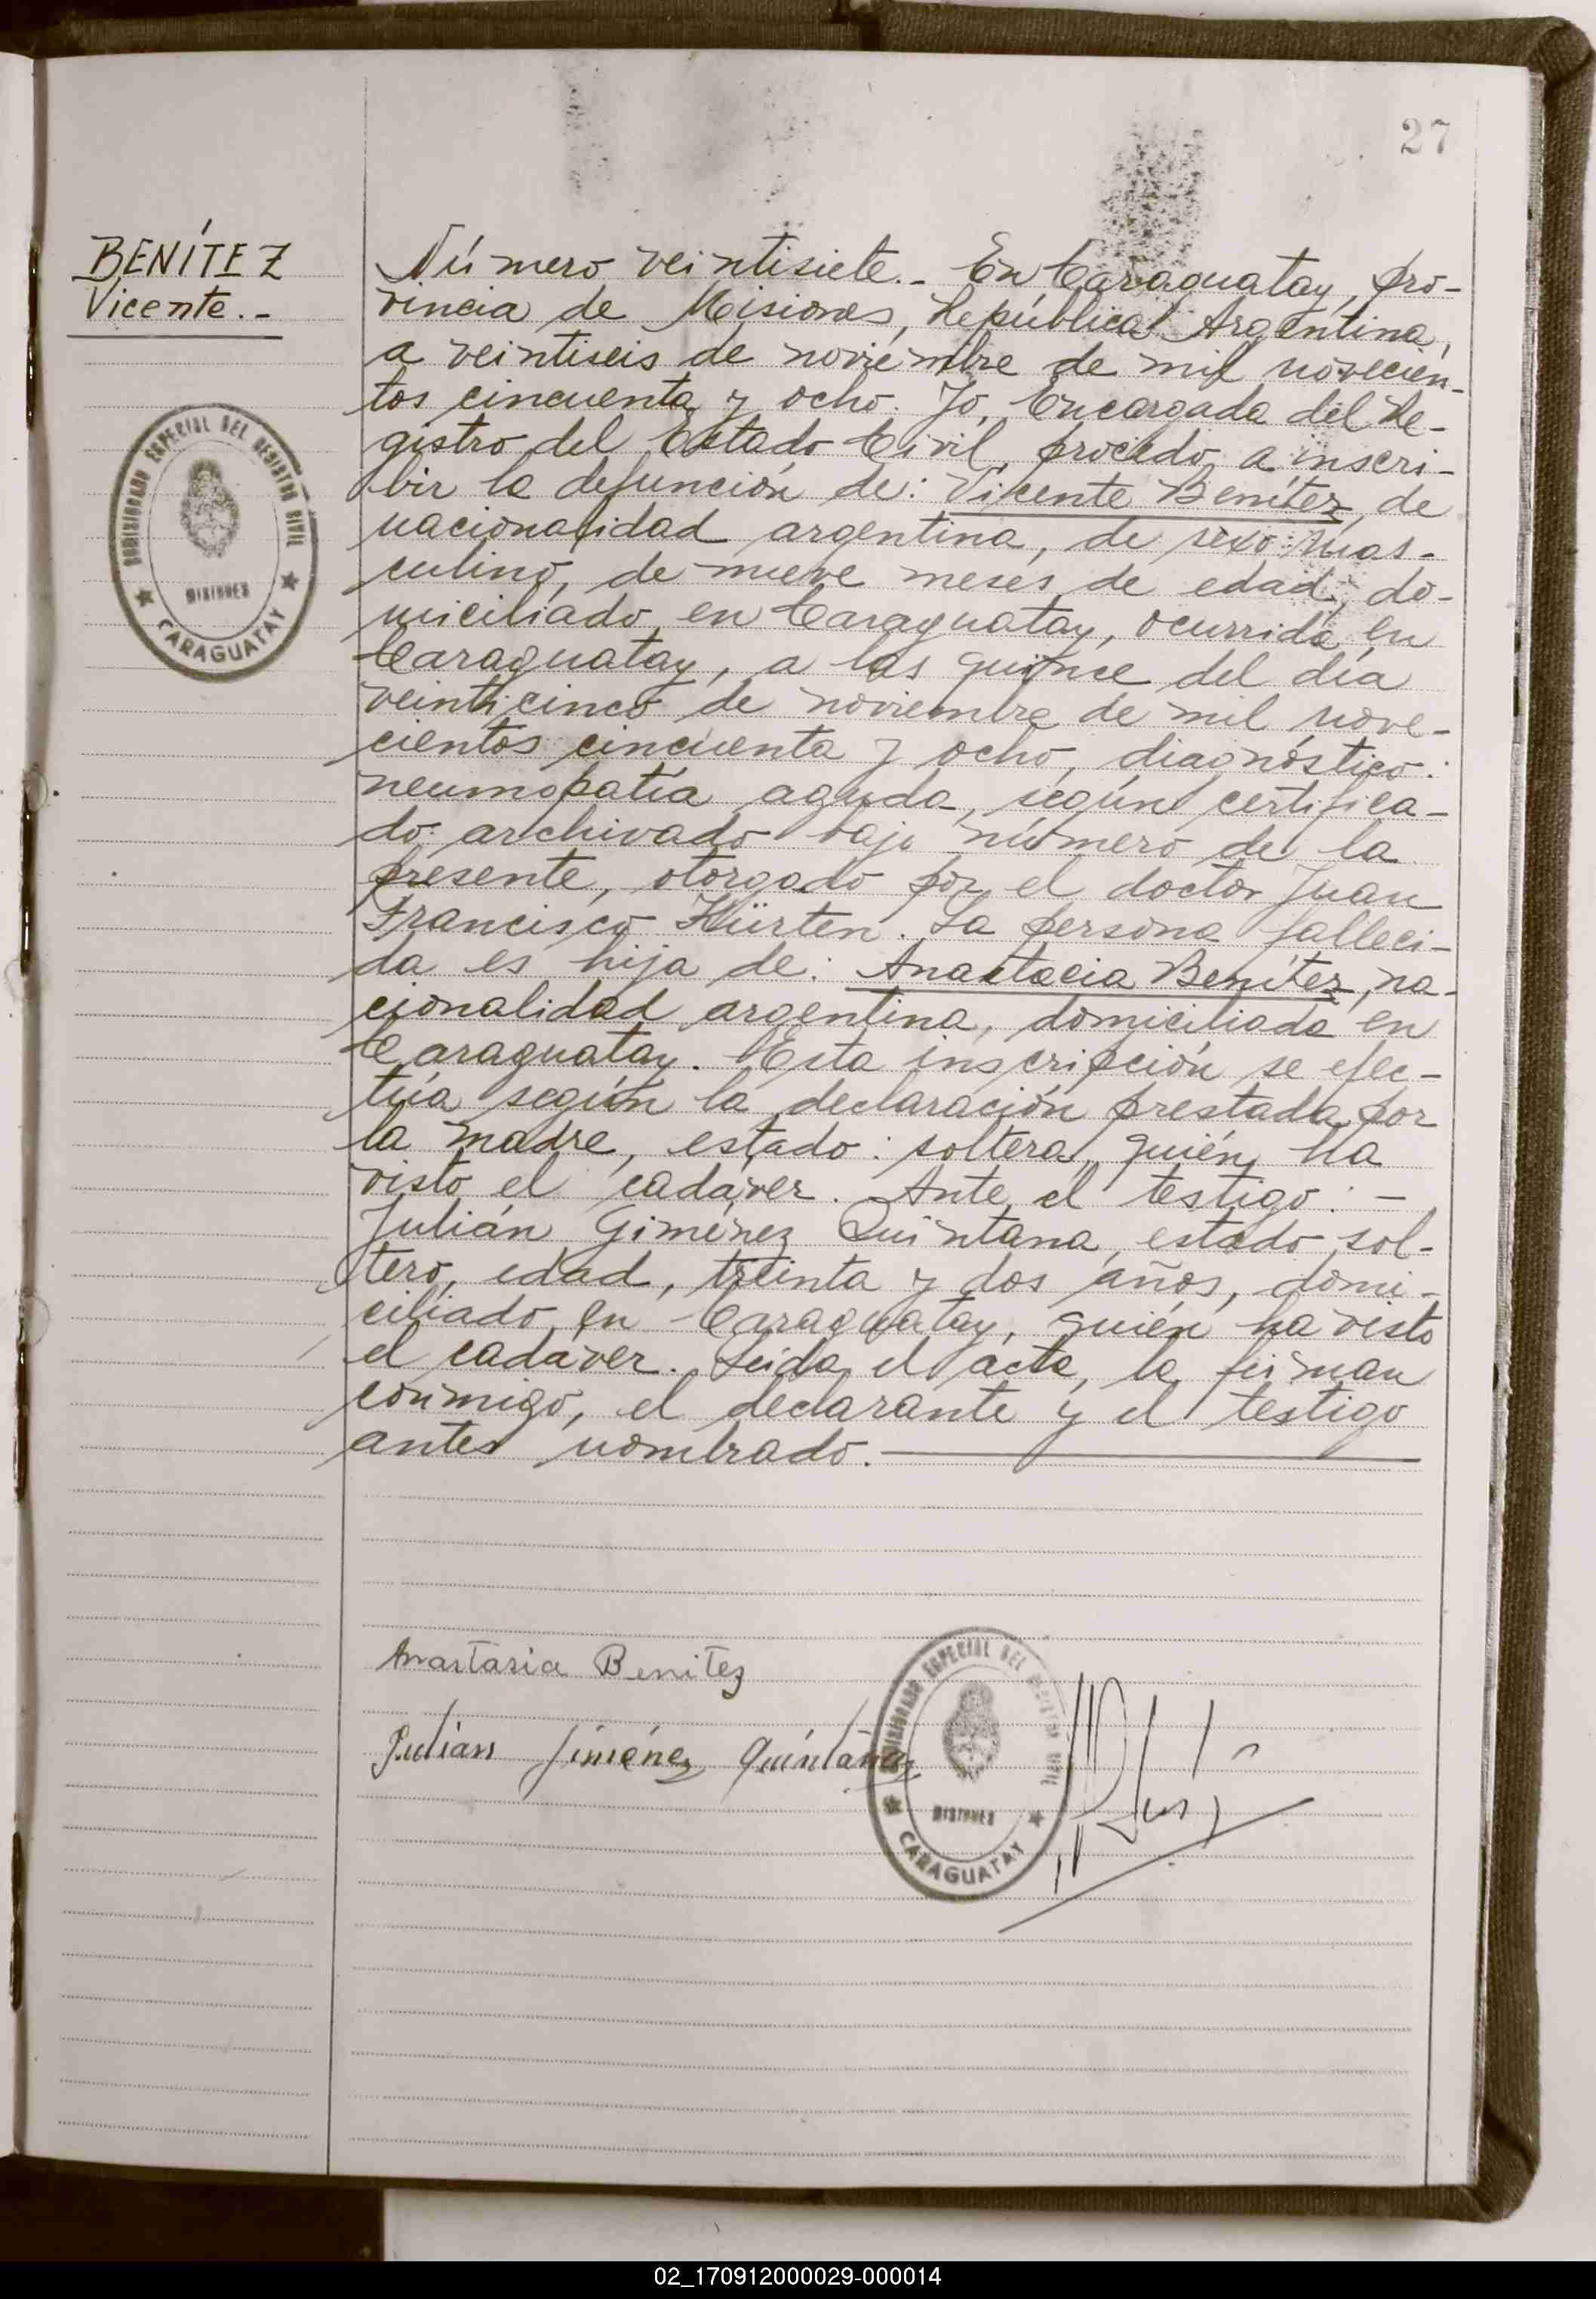 27
BENÍTEZ
Vicente.-
COMISIONADO ESPECIAL DEL REGISTRO CIVIL
MISIONES
CARAGUATAY
Número veintisiete.- En Caraguatay, pro-
vincia de Misiones, República Argentina,
a veintiseis de noviembre de mil novecien-
tos cincuenta y ocho. Yo, Encargada del Re-
gistro del Estado Civil, procedo a inscri-
bir la defunción de: Vicente Benítez, de
nacionalidad argentina, de sexo: mas-
culino, de nueve meses de edad, do-
miciliado en Caraguatay, ocurrida en
Caraguatay, a las quince del día
veinticinco de noviembre de mil nove-
cientos cincuenta y ocho, diagnóstico:
neumopatía aguda, según certifica-
do archivado bajo número de la
presente, otorgado por el doctor Juan
Francisco Hürten. La persona falleci-
da es hija de: Anastacia Benítez, na-
cionalidad argentina, domiciliada en
Caraguatay. Esta inscripción se efec-
túa según la declaración prestada por
la madre, estado: soltera, quién ha
visto el cadáver. Ante el testigo: -
Julián Giménez Quintana, estado sol-
tero, edad, treinta y dos años, domi-
ciliado en Caraguatay, quién ha visto
el cadáver. Leída el acta, la firman
conmigo, el declarante y el testigo
antes nombrado.
Anastasia Benitez
Julian Jiménez Quintana
COMISIONADO ESPECIAL DEL REGISTRO CIVIL
MISIONES
CARAGUATAY
02_170912000029-000014